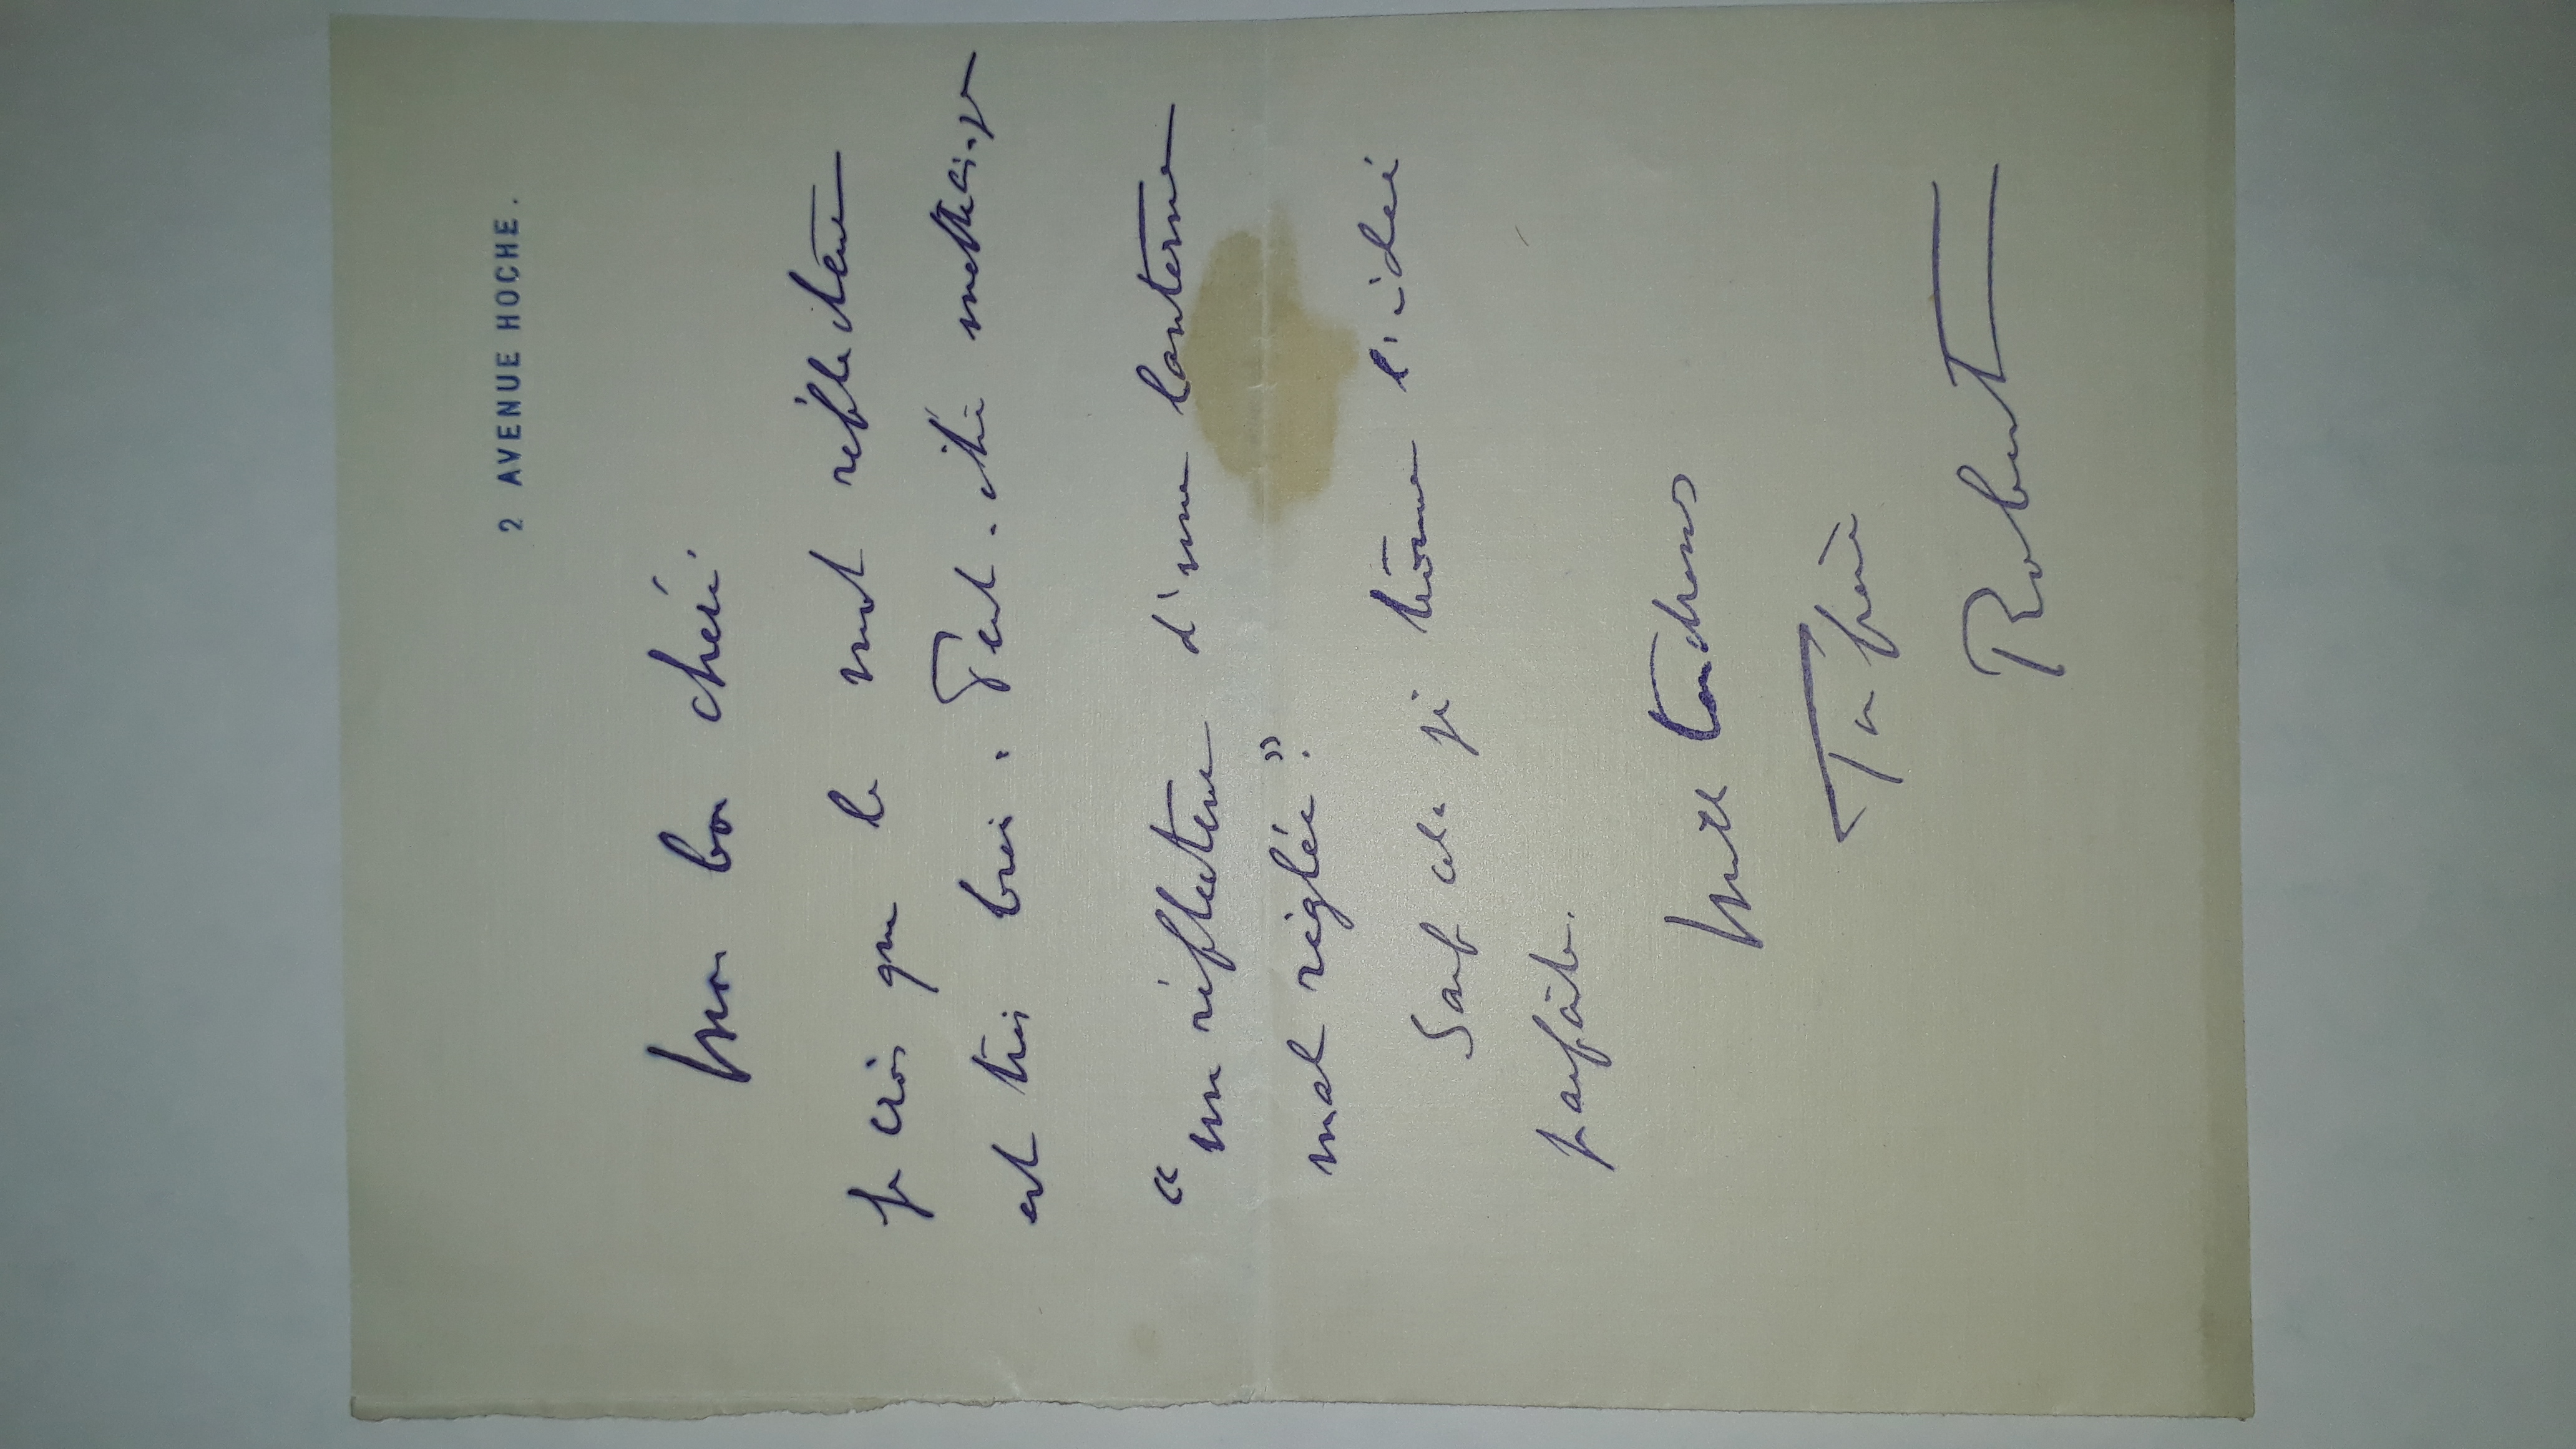 2 AVENUE HOCHE.
Mon bon chéri.
Je crois que le mot réflecteur
est très bien. Peut-être mettrais-je
"un réflecteur d'une lanterne
mal réglée".
Sauf cela je trouve l'idée
parfaite.
Mille tendresses
Ta
Robert